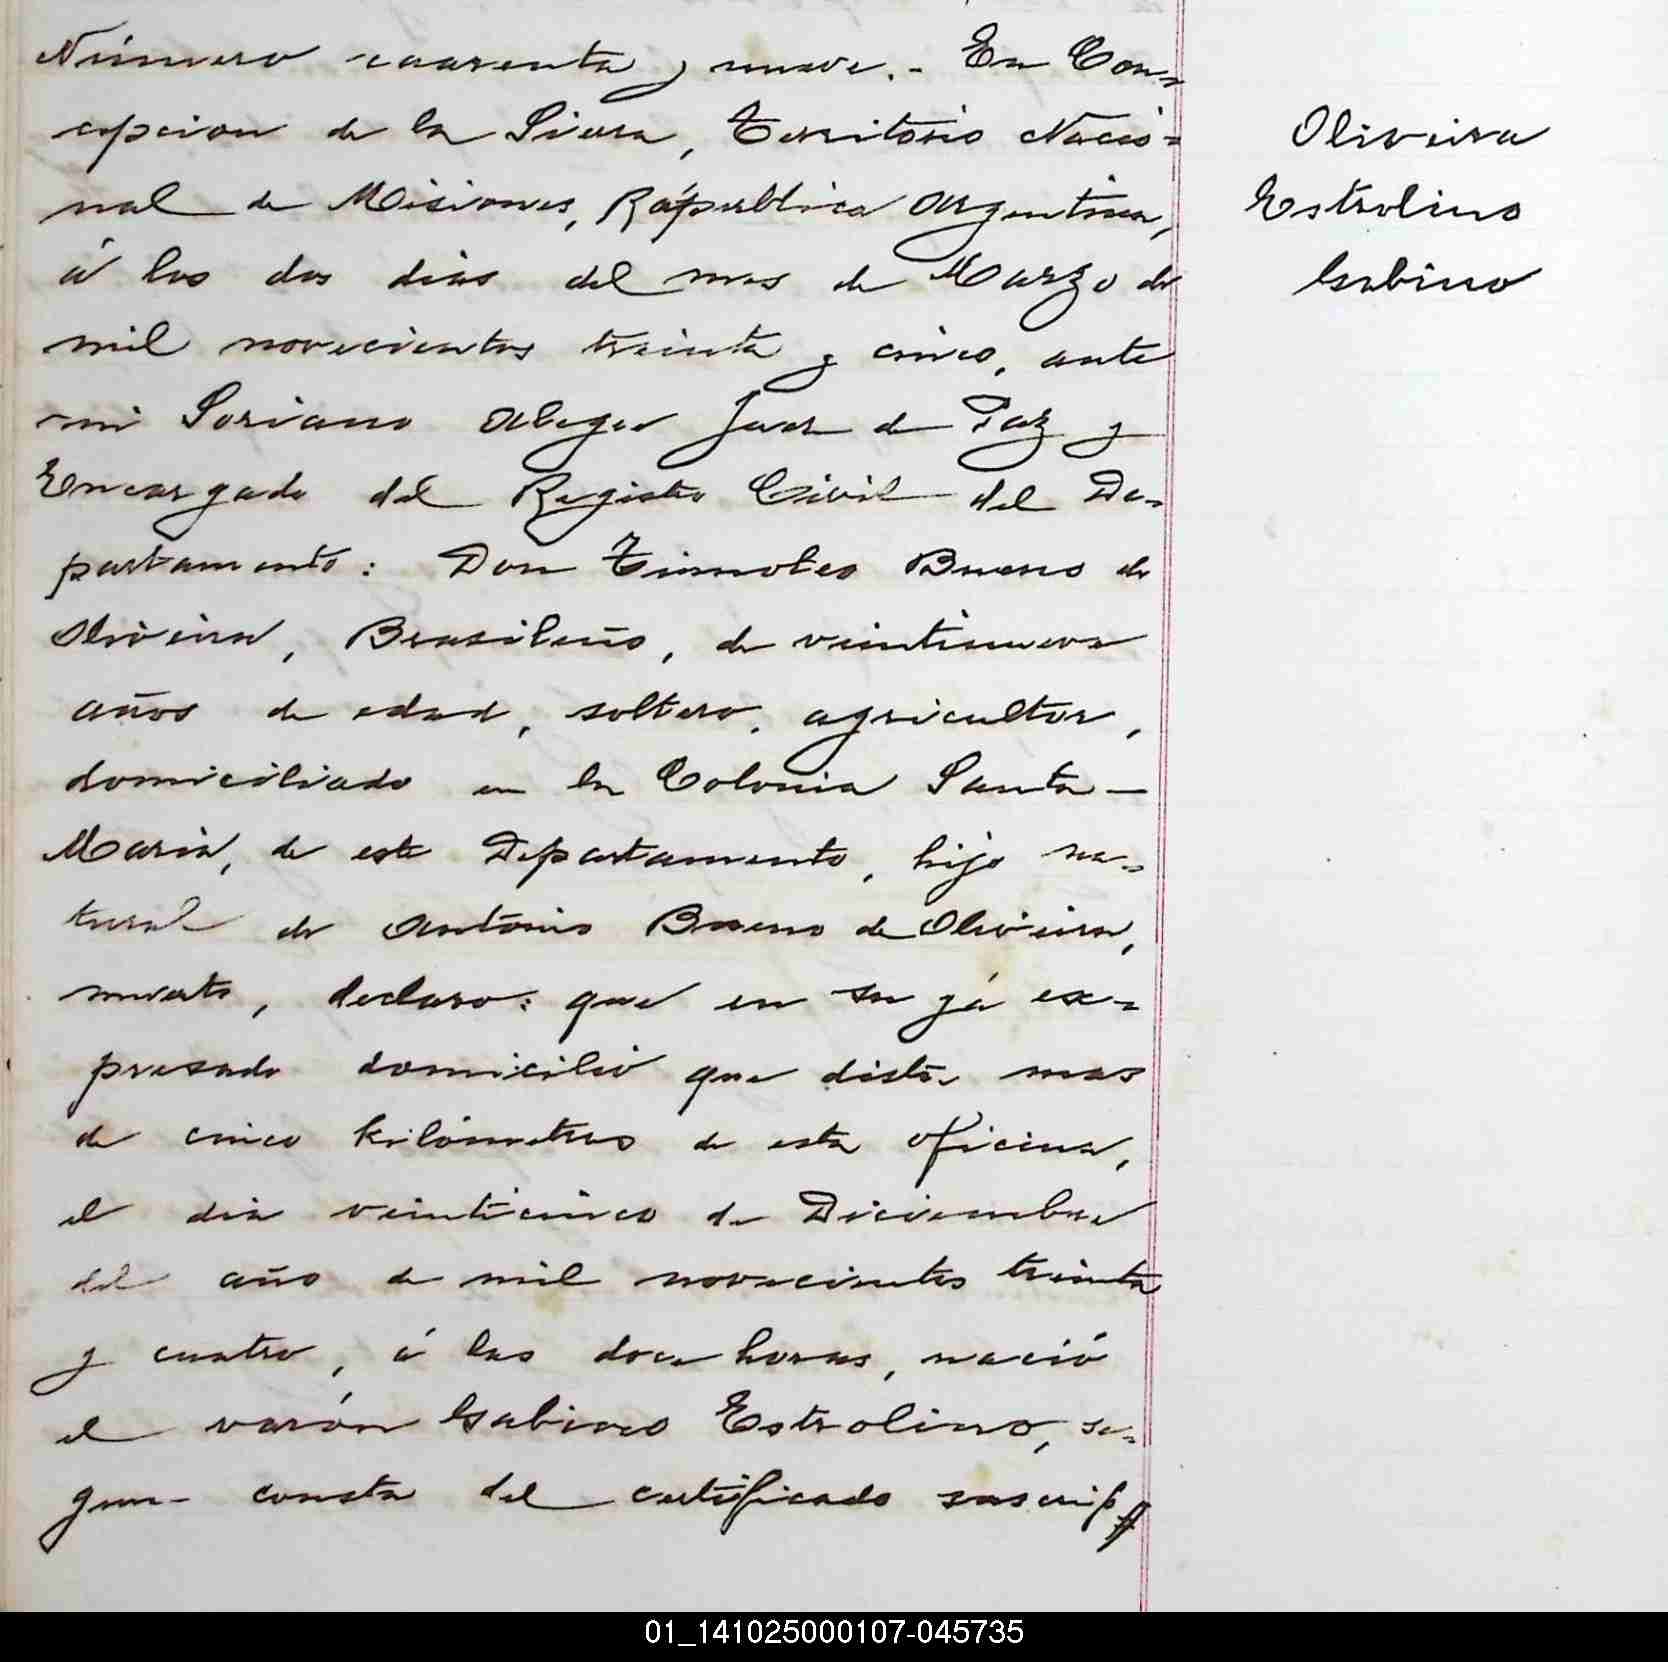 Número cuarenta y nueve.- En Con-
cepcion de la Sierra, Territorio Nacio-
nal de Misiones, República Argentina,
á los dos dias del mes de Marzo de
mil novecientos treinta y cinco, ante
mi Soriano Juez de Paz y
Encargado del Registro Civil del De-
partamento: Don Timoteo Bueno de
Oliveira, Brasileño, de veintinueve
años de edad, soltero, agricultor,
domiciliado en la Colonia Santa
Maria, de este Departamento, hijo na-
tural de Antonio Bueno de Oliveira,
muerto, declaro: que en su yá ex-
presado domicilio que dista mas
de cinco kilómetros de esta oficina,
el dia veinticinco de Diciembre
del año de mil novecientos treinta
y cuatro, á las doce horas, nació
el varón Gabino Estrolino, se-
gun- consta del certificado suscrip
Oliveira
Estrolino
Gabino
01_141025000107-045735